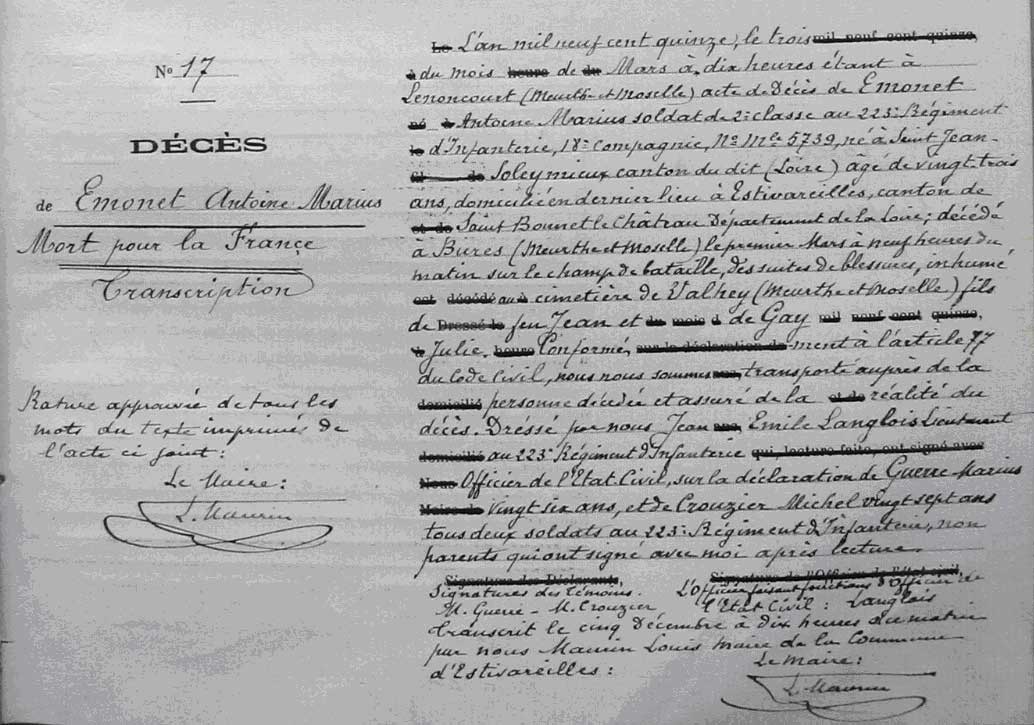 N° 17
DÉCÈS
de Emonet Antoine Marius
Mort pour la France
Transcription
Rature approuvée de tous les
mots du texte imprimés de
l'acte ci joint :
Le Maire :
L. Maurin
Le L'an mil neuf cent quinze, le trois mil neuf cent quinze,
à du mois heure de du Mars à dix heures étant à
Lenoncourt (Meurthe et Moselle) acte de Décès de Emonet
né à Antoine Marius soldat de 2e classe au 223e Régiment
le d'Infanterie, 18e Compagnie, No Mle 5739, né à Saint Jean-
et de Soleymieux canton du dit (Loire) âgé de vingt-trois
ans, domicilié en dernier lieu à Estivareilles, canton de
et de Saint Bonnet le Château Département de la Loire; décédé
à Bures (Meurthe et Moselle) le premier Mars à neuf heures du
matin sur le champ de bataille, des suites de blessures, inhumé
est décédé au à cimetière de Valhey (Meurthe et Moselle) fils
de Dressé le feu Jean et du mois d de Gay mil neuf cent quinze,
à Julie. heure Conformé, sur la déclaration de -ment à l'article 77
du Code Civil, nous nous sommes transporté auprès de la
domicilié personne décédée et assuré de la et de réalité du
décès. Dressé par nous Jean Emile Langlois Lieutenant
domicilié au 223e Régiment d'Infanterie qui, lecture faite, ont signé avec
Nous Officier de l'Etat Civil, sur la déclaration de Guerre Marius
Maire de Vingt six ans, et de Crouzier Michel vingt sept ans
tous deux soldats au 223e Régiment d'Infanterie, non
parents qui ont signé avec moi après lecture.
Signature des Déclarants, Signature de l'Officier de l'état civil,
Signatures des témoins. L'Officier faisant fonctions d'Officier de
M. Guerre - M. Crouzier l'Etat Civil : Langlois
Transcrit le cinq Décembre à dix heures du matin
par nous Maurin Louis maire de la Commune
d'Estivareilles : Le Maire :
L. Maurin